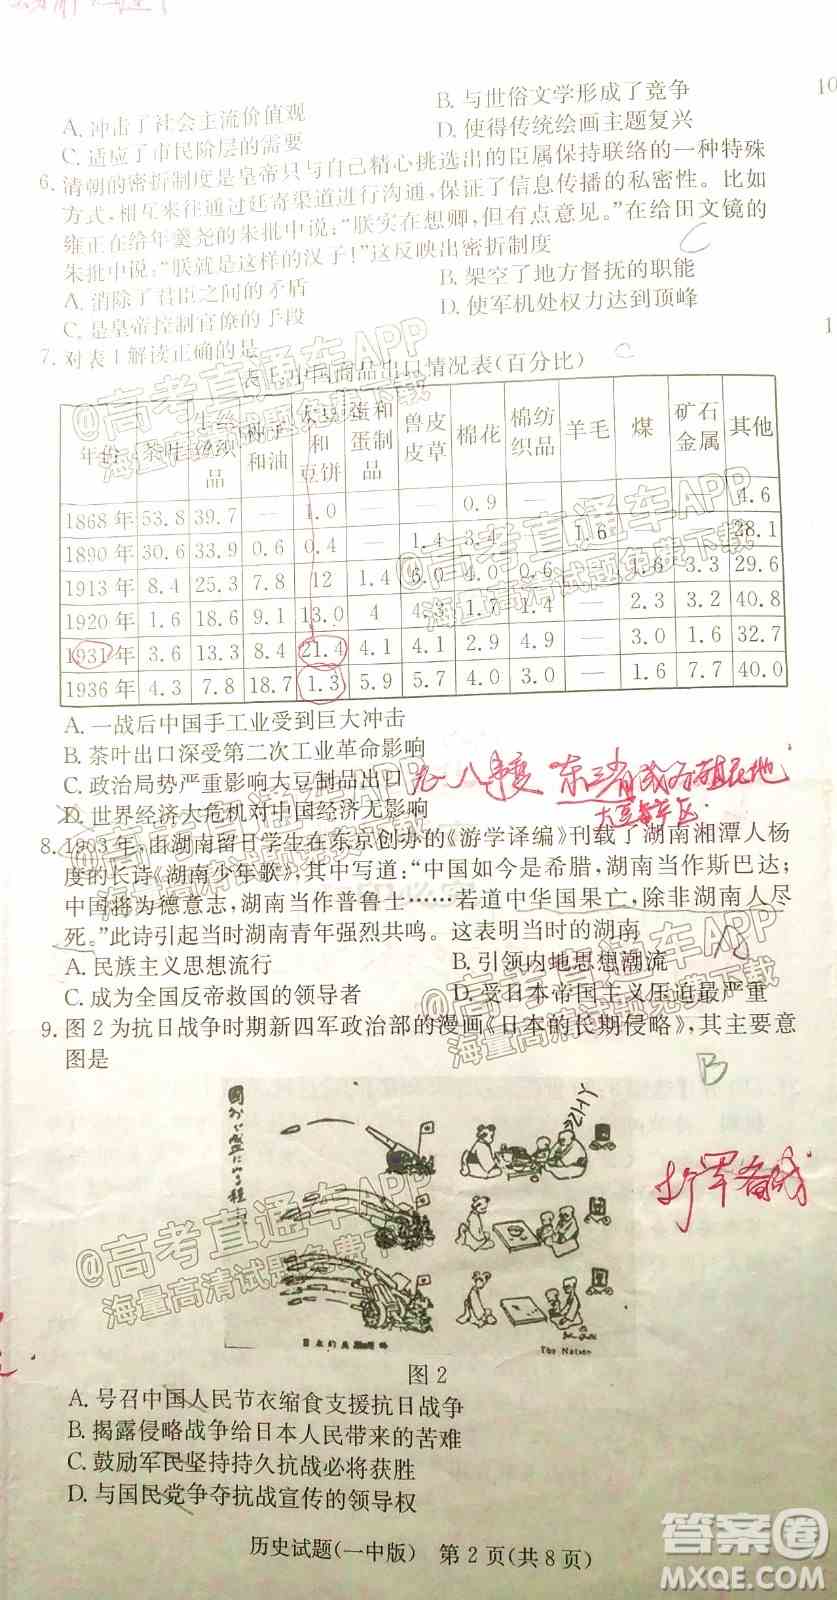 A. 冲击了社会主流价值观
B. 与世俗文学形成了竞争
10
C. 适应了市民阶层的需要
D. 使得传统绘画主题复兴
6. 清朝的密折制度是皇帝只与自己精心挑选出的臣属保持联络的一种特殊
方式,相互来往通过廷寄渠道进行沟通,保证了信息传播的私密性。比如
雍正在给年羹尧的朱批中说:“朕实在想卿,但有点意见。”在给田文镜的
朱批中说:“朕就是这样的汉子!”这反映出密折制度
C
A. 消除了君臣之间的矛盾
B. 架空了地方督抚的职能
C. 是皇帝控制官僚的手段
D. 使军机处权力达到顶峰
1
7. 对表1解读正确的是
C
表1 中国商品出口情况表(百分比)
年份 茶叶 生丝丝织品 种子和油 大豆和豆饼 蛋和蛋制品 兽皮皮草 棉花 棉纺织品 羊毛 煤 矿石金属 其他
1868年 53.8 39.7 — 1.0 — — 0.9 — — — — 4.6
1890年 30.6 33.9 0.6 0.4 — 1.4 3.4 — 1.6 — — 28.1
1913年 8.4 25.3 7.8 12 1.4 6.0 4.0 0.6 — 1.6 3.3 29.6
1920年 1.6 18.6 9.1 13.0 4 4.3 1.7 1.4 — 2.3 3.2 40.8
1931年 3.6 13.3 8.4 21.4 4.1 4.1 2.9 4.9 — 3.0 1.6 32.7
1936年 4.3 7.8 18.7 1.3 5.9 5.7 4.0 3.0 — 1.6 7.7 40.0
A. 一战后中国手工业受到巨大冲击
B. 茶叶出口深受第二次工业革命影响
C. 政治局势严重影响大豆制品出口
九一八事变 东三省成为殖民地
D. 世界经济大危机对中国经济无影响
8. 1903年,由湖南留日学生在东京创办的《游学译编》刊载了湖南湘潭人杨
度的长诗《湖南少年歌》,其中写道:“中国如今是希腊,湖南当作斯巴达;
中国将为德意志,湖南当作普鲁士……若道中华国果亡,除非湖南人尽
死。”此诗引起当时湖南青年强烈共鸣。这表明当时的湖南
A
A. 民族主义思想流行
B. 引领内地思想潮流
C. 成为全国反帝救国的领导者
D. 受日本帝国主义压迫最严重
9. 图2为抗日战争时期新四军政治部的漫画《日本的长期侵略》,其主要意
图是
B
ZHY
The Nation
图2
A. 号召中国人民节衣缩食支援抗日战争
B. 揭露侵略战争给日本人民带来的苦难
C. 鼓励军民坚持持久抗战必将获胜
D. 与国民党争夺抗战宣传的领导权
历史试题(一中版) 第2页(共8页)
@高考直通车APP
海量高清试题免费下载
@高考直通车APP
海量高清试题免费下载
@高考直通车APP
海量高清试题免费下载
@高考直通车APP
海量高清试题免费下载
@高考直通车APP
海量高清试题免费下载
答案圈
MXQE.COM